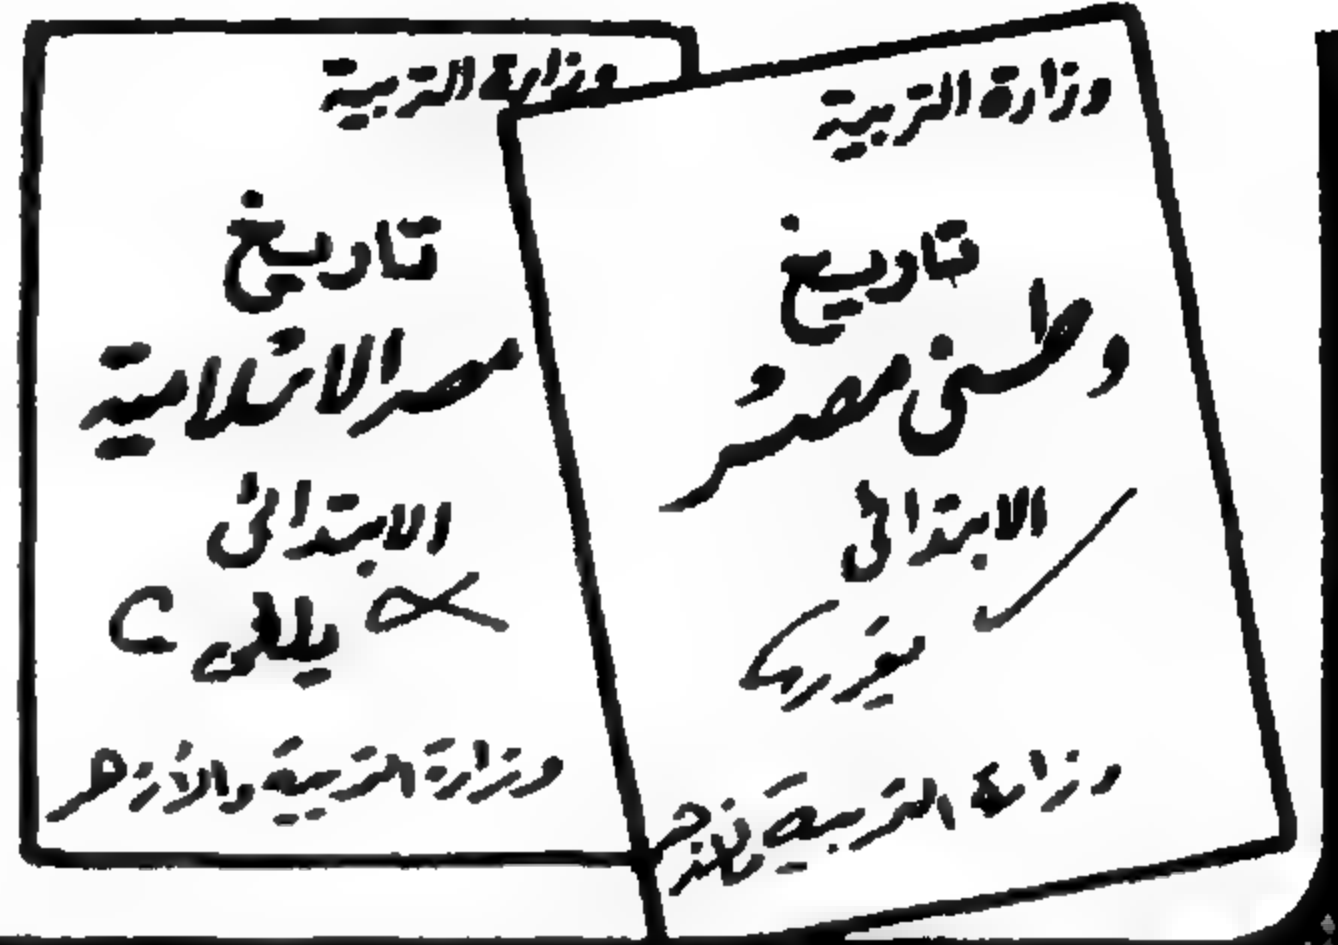 وزارة التربية
تاريخ
وطنى مصر
الابتدائى
وزارة التربية
وزارة التربية
تاريخ
مصر الاسلامية
الابتدائى
وزارة التربية والأزهر